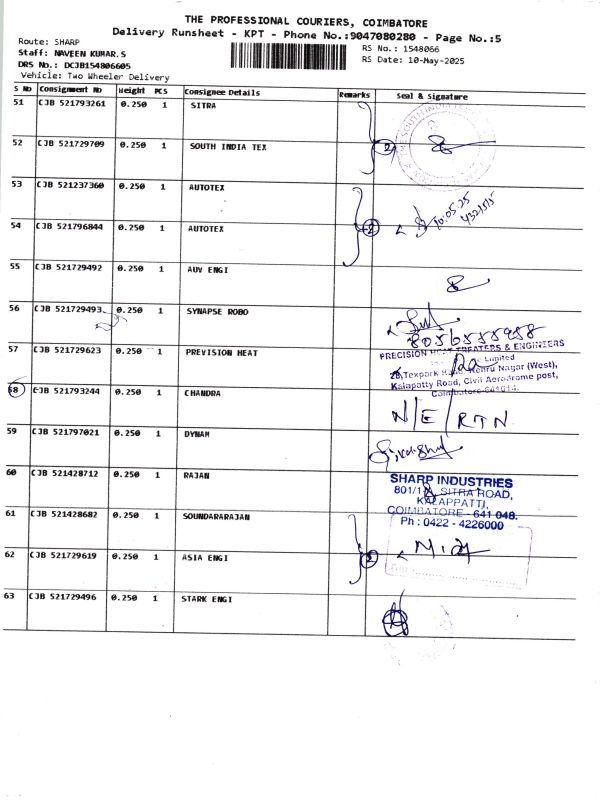 THE PROFESSIONAL COURIERS, COIMBATORE
Delivery Runsheet - KPT - Phone No.:9047080280 - Page No.:5
Route: SHARP
Staff: NAVEEN KUMAR.S
DRS No.: DCJB154806605
Vehicle: Two Wheeler Delivery
RS No.: 1548066
RS Date: 10-May-2025
S No Consignment No Weight PCS Consignee Details Remarks Seal & Signature
51 CJB 521793261 0.250 1 SITRA
52 CJB 521729709 0.250 1 SOUTH INDIA TEX 2
53 CJB 521237360 0.250 1 AUTOTEX
10.05.25
54 CJB 521796844 0.250 1 AUTOTEX 2
55 CJB 521729492 0.250 1 AUV ENGI
56 CJB 521729493 0.250 1 SYNAPSE ROBO
8056555958
57 CJB 521729623 0.250 1 PREVISION HEAT
PRECISION HEATREATERS & ENGINEERS
Limited
28,Texpark Road, Nehru Nagar (West),
Kalapatty Road, Civil Aerodrome post,
Coimbatore-641014.
58 CJB 521793244 0.250 1 CHANDRA N/E/RTN
59 CJB 521797021 0.250 1 DYNAM
60 CJB 521428712 0.250 1 RAJAN
SHARP INDUSTRIES
801/1 SITRA ROAD,
KALAPPATTI,
COIMBATORE - 641 048.
Ph : 0422 - 4226000
61 CJB 521428682 0.250 1 SOUNDARARAJAN
62 CJB 521729619 0.250 1 ASIA ENGI 2
63 CJB 521729496 0.250 1 STARK ENGI